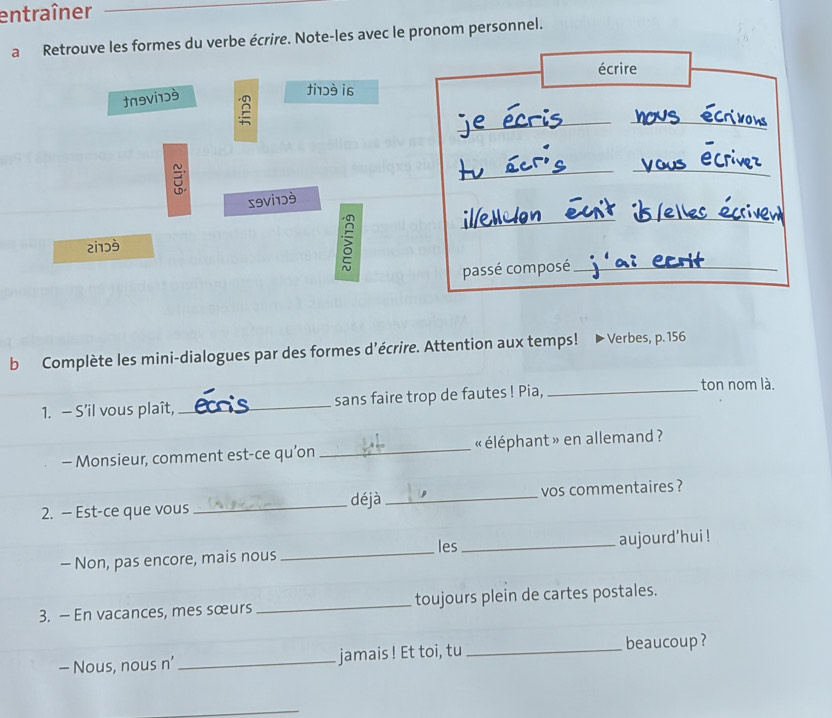 entraîner
a Retrouve les formes du verbe écrire. Note-les avec le pronom personnel.
écrivent
écrit
ai écrit
écris
écrivez
écrivons
écris
écrire
je écris nous écrivons
tu écris vous écrivez
il/elle/on écrit ils/elles écrivent
passé composé j'ai ecrit
b Complète les mini-dialogues par des formes d'écrire. Attention aux temps! ▶ Verbes, p. 156
1. – S'il vous plaît, écris sans faire trop de fautes ! Pia, ____ ton nom là.
– Monsieur, comment est-ce qu'on ____ « éléphant » en allemand ?
2. – Est-ce que vous ____ déjà ____ vos commentaires ?
– Non, pas encore, mais nous ____ les ____ aujourd'hui !
3. – En vacances, mes sœurs ____ toujours plein de cartes postales.
– Nous, nous n' ____ jamais ! Et toi, tu ____ beaucoup ?